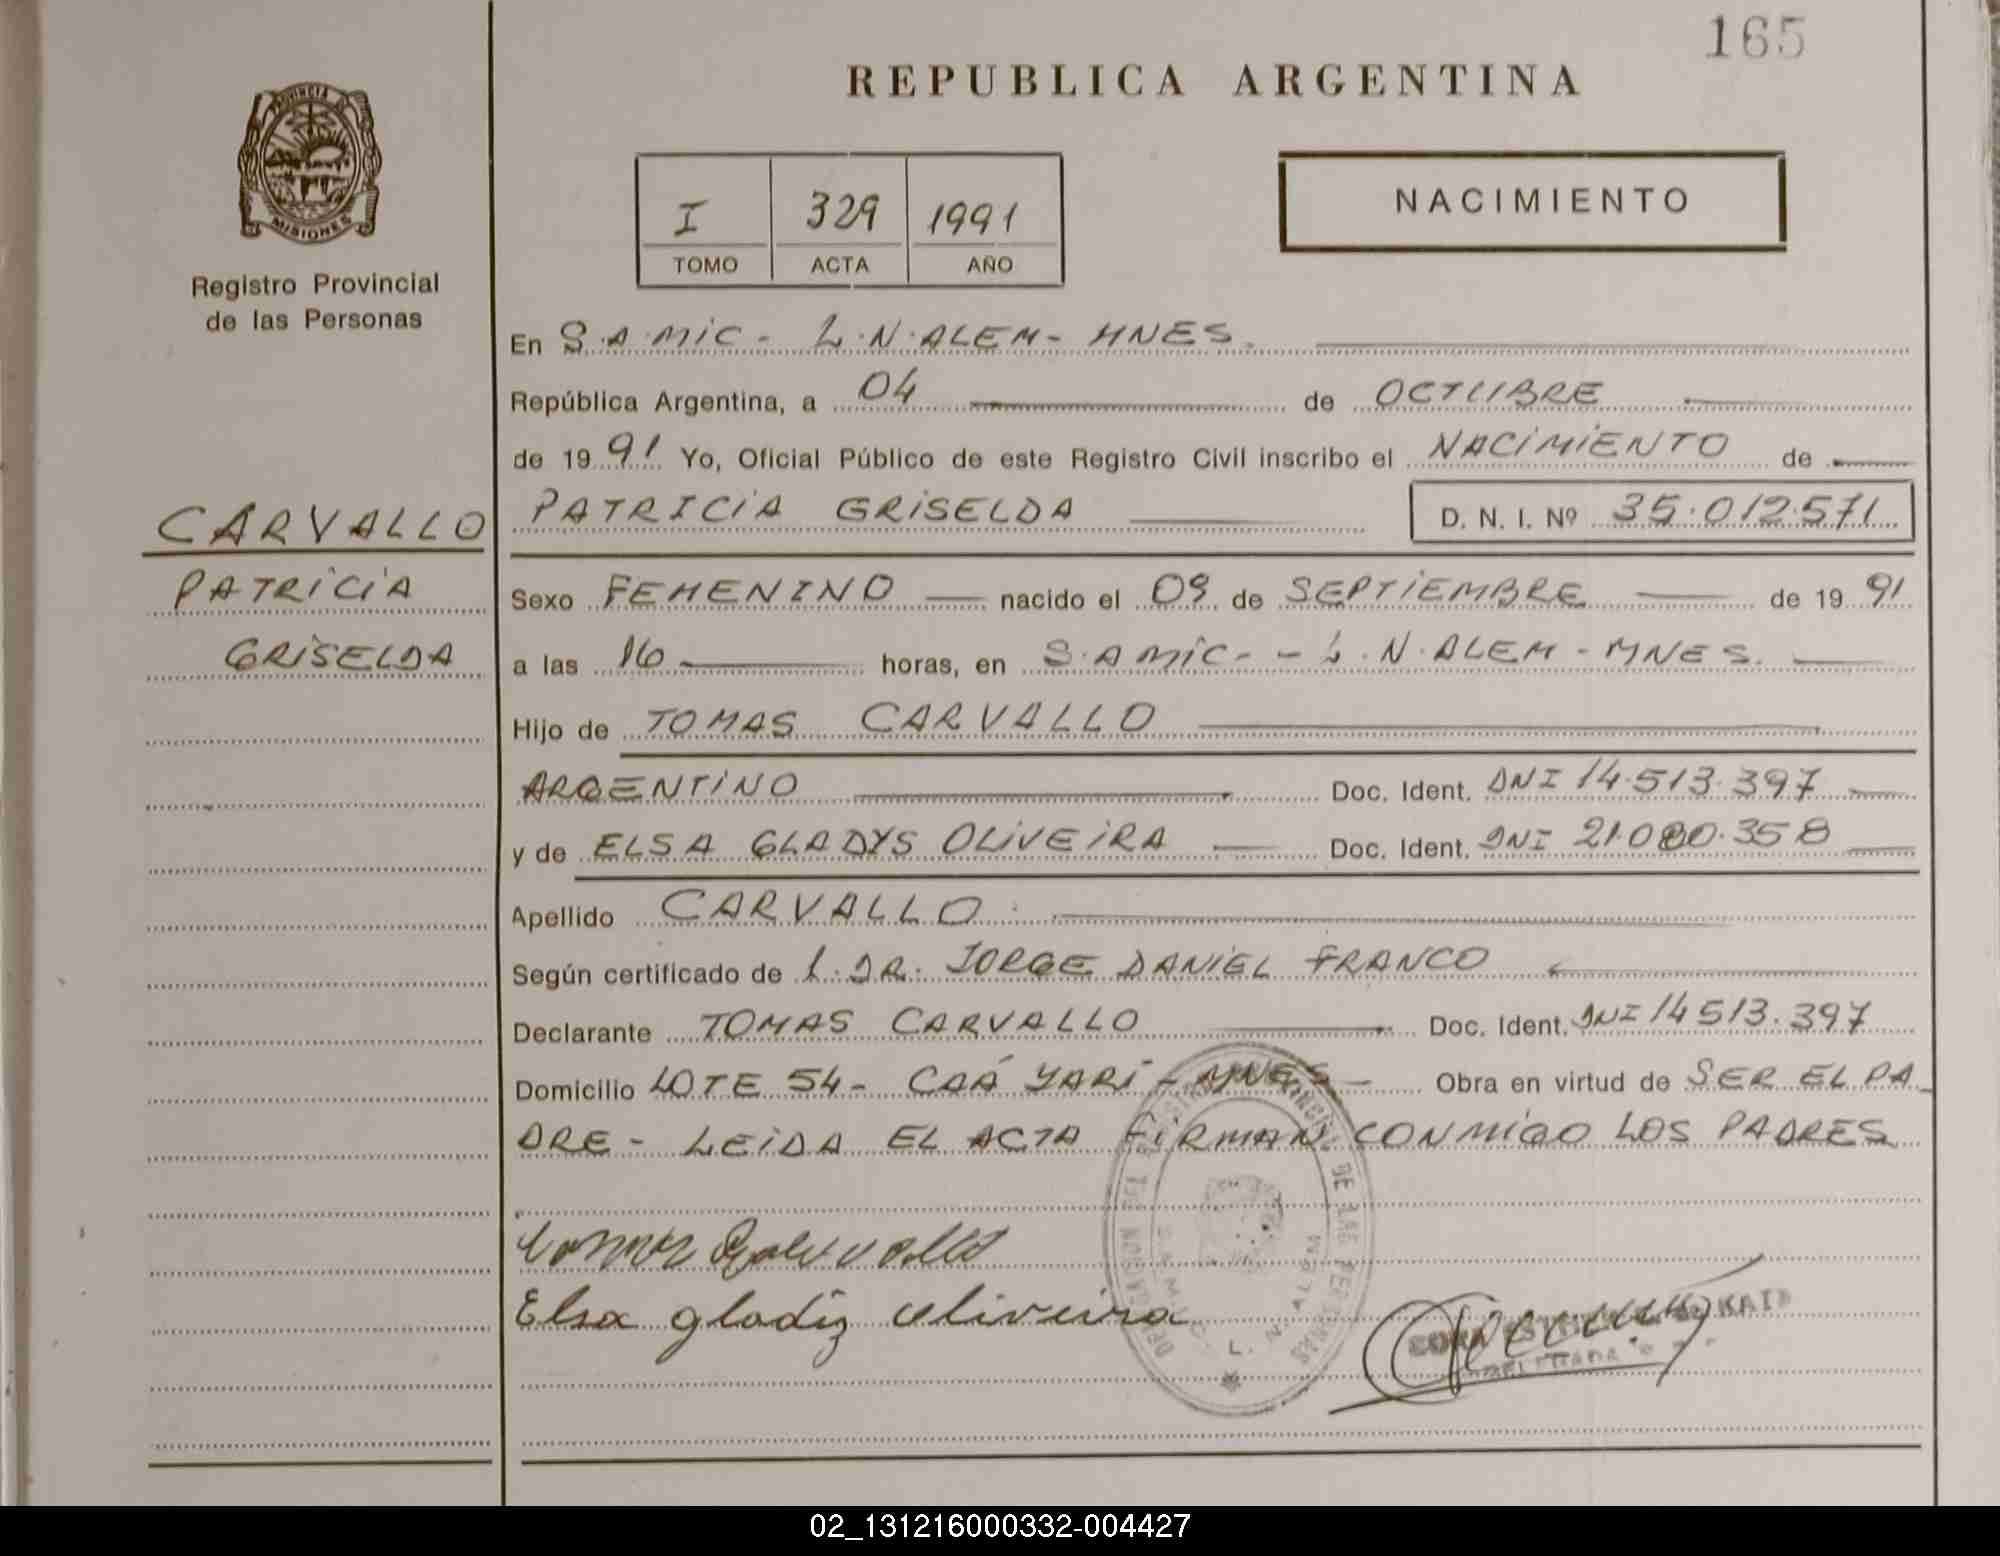 165
REPUBLICA ARGENTINA
PROVINCIA DE MISIONES
Registro Provincial
de las Personas
I 329 1991
TOMO ACTA AÑO
NACIMIENTO
En S.A.MiC - L.N.ALEM - MNES.
República Argentina, a 04 de OCTUBRE
de 1991 Yo, Oficial Público de este Registro Civil inscribo el NACIMIENTO de
CARVALLO
PATRICIA
GRISELDA
PATRICIA GRISELDA D. N. I. Nº 35.012.571
Sexo FEMENINO nacido el 09 de SEPTIEMBRE de 1991
a las 16 horas, en S.A MiC. - L.N.ALEM - MNES.
Hijo de TOMAS CARVALLO
ARGENTINO Doc. Ident. DNI 14.513.397
y de ELSA GLADYS OLIVEIRA Doc. Ident. DNI 21.080.358
Apellido CARVALLO
Según certificado de L. DR. JORGE DANIEL FRANCO
Declarante TOMAS CARVALLO Doc. Ident. DNI 14513.397
Domicilio LOTE 54 - CAÁ YARÍ - MNES - Obra en virtud de SER EL PA
DRE - LEIDA EL ACTA FIRMAN CONMIGO LOS PADRES
Elsa gladiz oliveira
L. N. ALEM
02_131216000332-004427